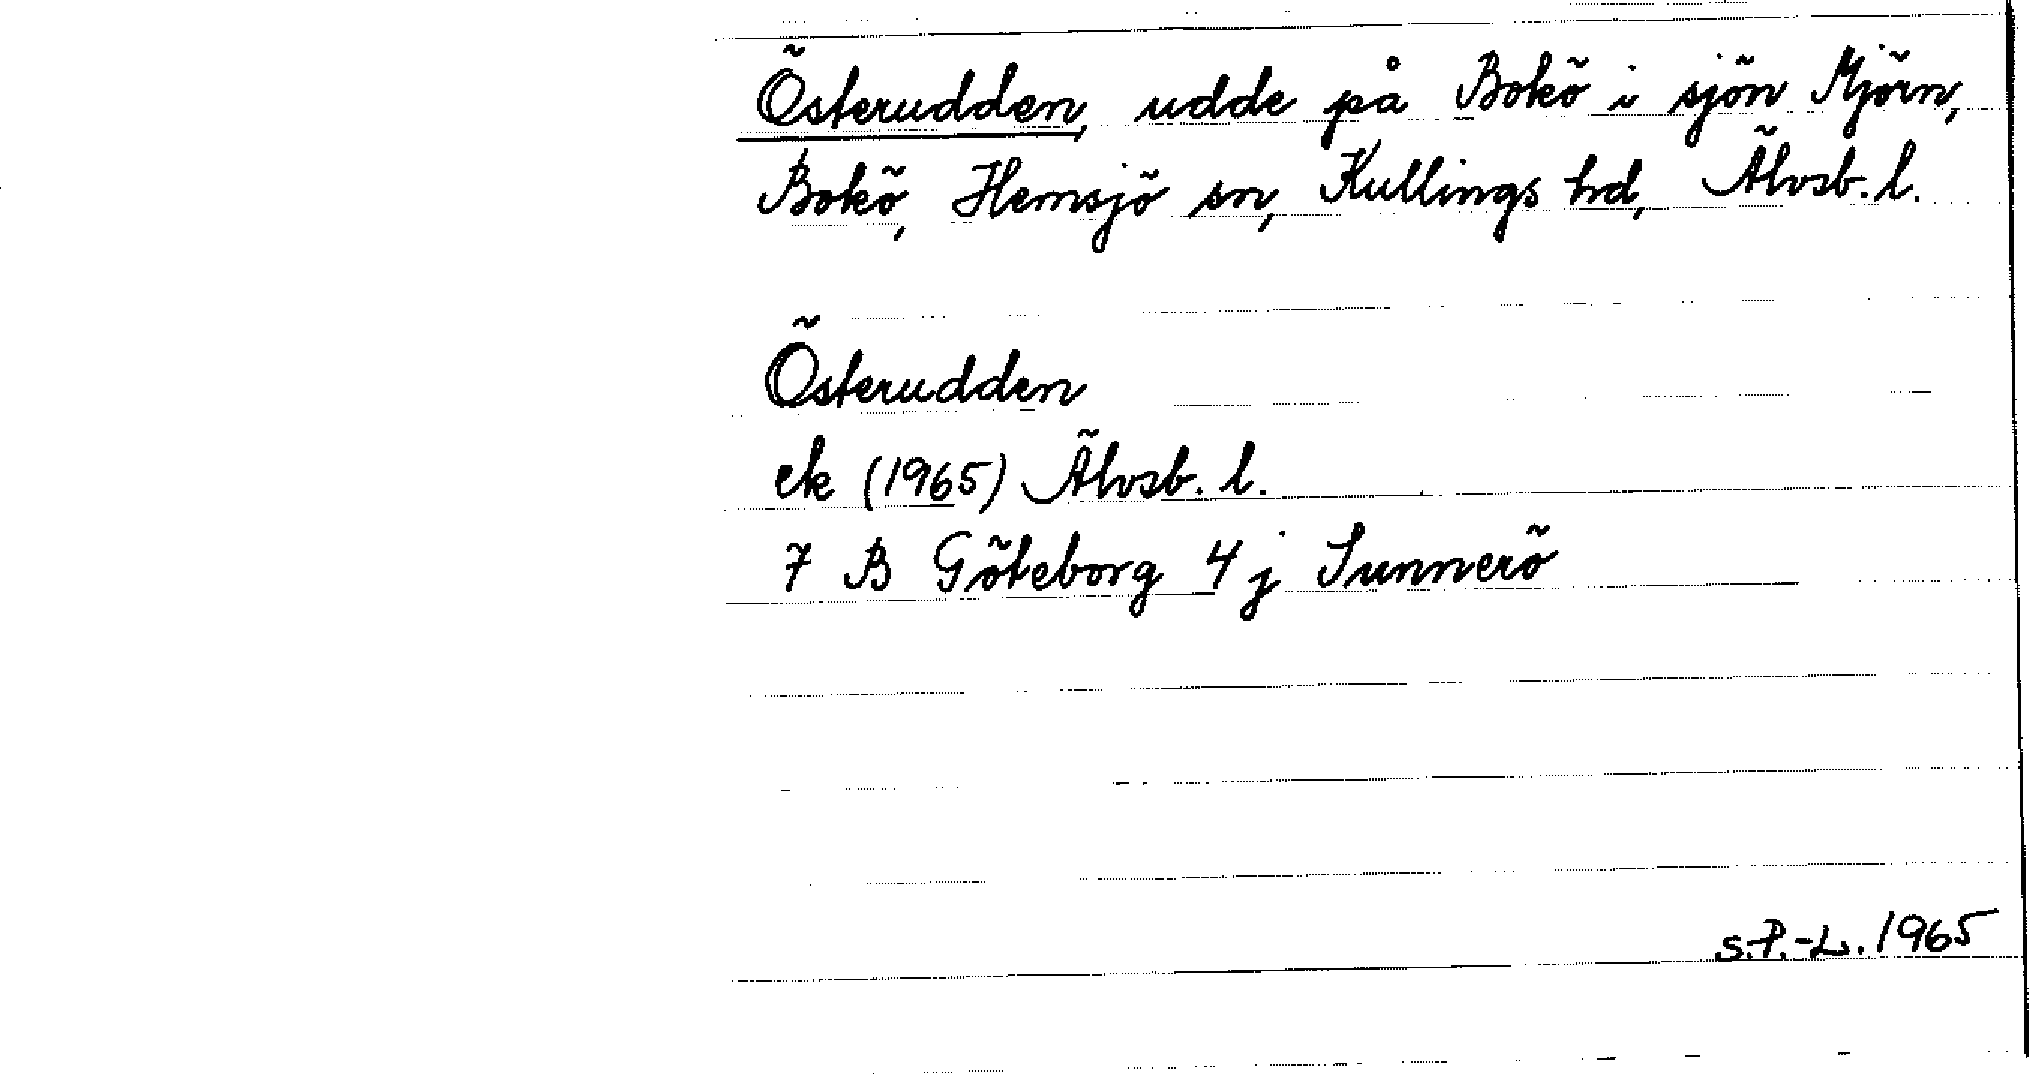 Österudden, udde på Bokö i sjön Mjörn,
Bokö, Hemsjö sn, Kullings hd, Älvsb. l.
Österudden
ek (1965) Älvsb. l.
7 B Göteborg 4 j Sunnerö
S.P.-L. 1965